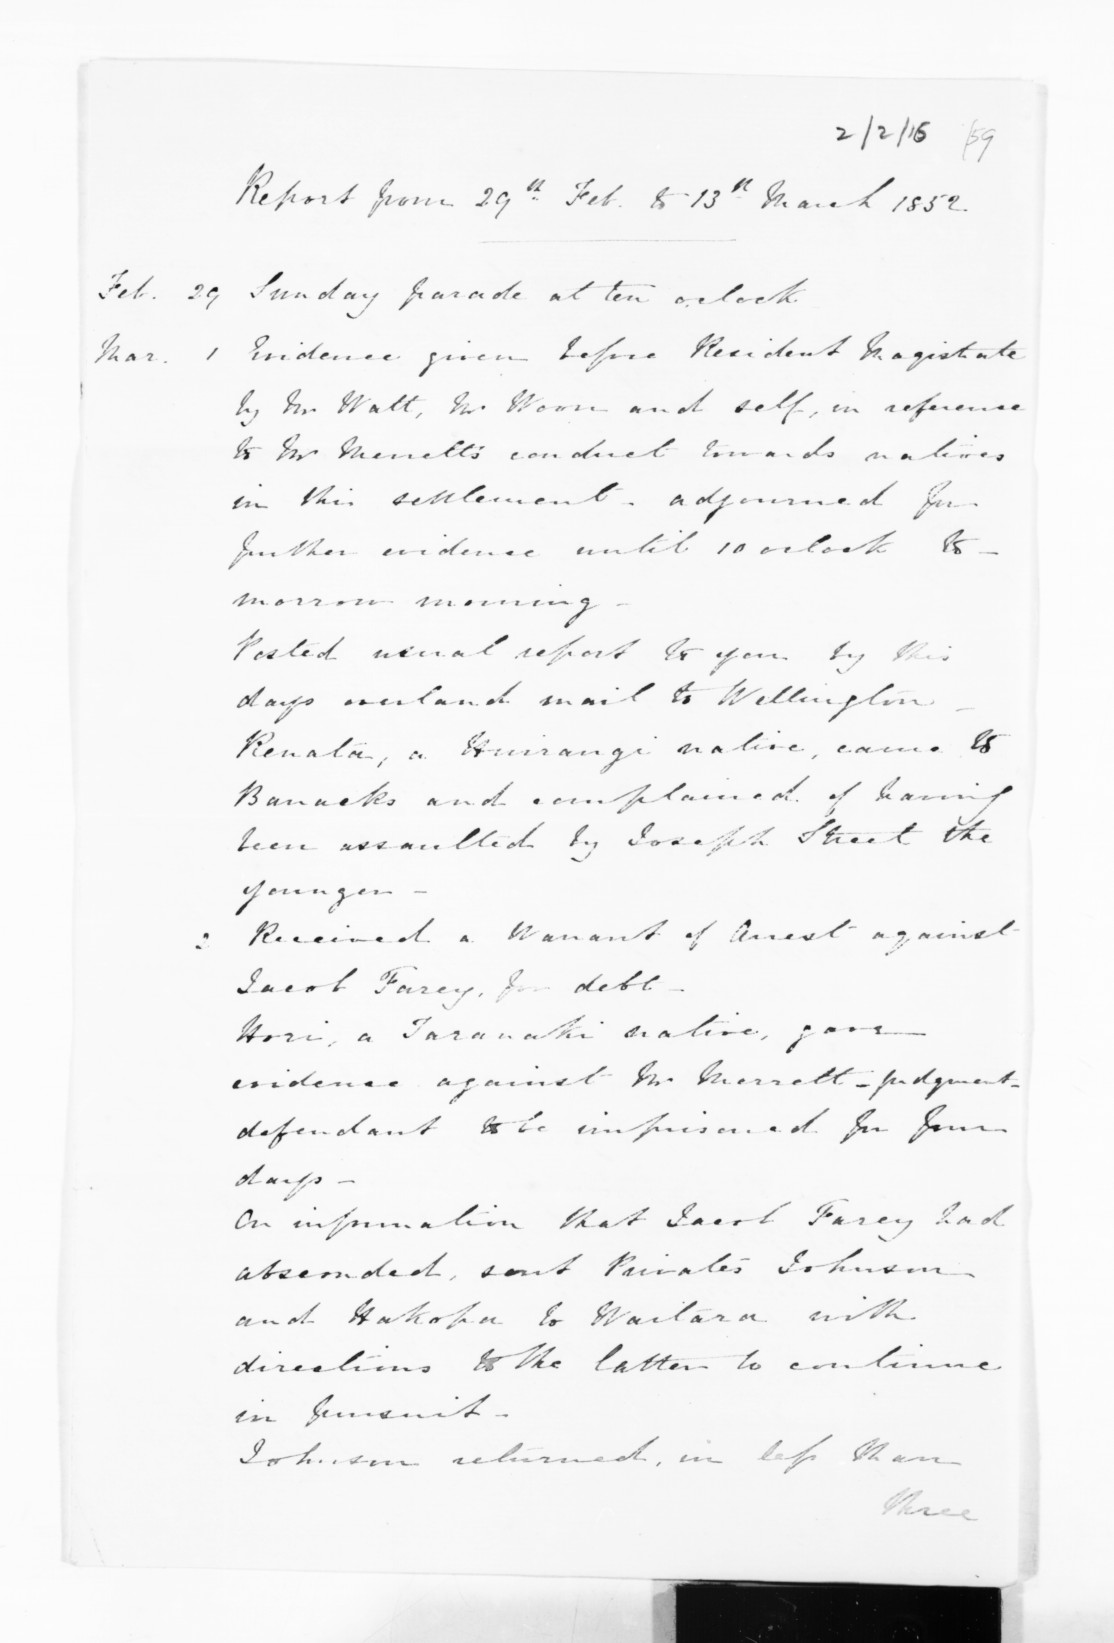 2/2/16 159
Report from 29th Feb. to 13th March 1852.
Feb. 29 Sunday parade at ten oclock
Mar. 1 Evidence given before Resident Magistrate
by Mr Watt, Mr Woon and self, in reference
to Mr Merrett's conduct towards natives
in this settlement - adjourned for
further evidence until 10 oclock to-
morrow morning -
Posted usual report to you by this
days overland mail to Wellington -
Renata, a Huirangi native, came to
Barracks and complained of having
been assaulted by Joseph Street the
younger -
2 Received a Warrant of Arrest against
Jacob Farey, for debt -
Hori, a Taranaki native, gave
evidence against Mr Merrett - judgment -
defendant to be imprisoned for four
days -
On information that Jacob Farey had
absconded, sent Privates Johnson
and Hakopa to Waitara with
directions to the latter to continue
in pursuit -
Johnson returned, in less than
three